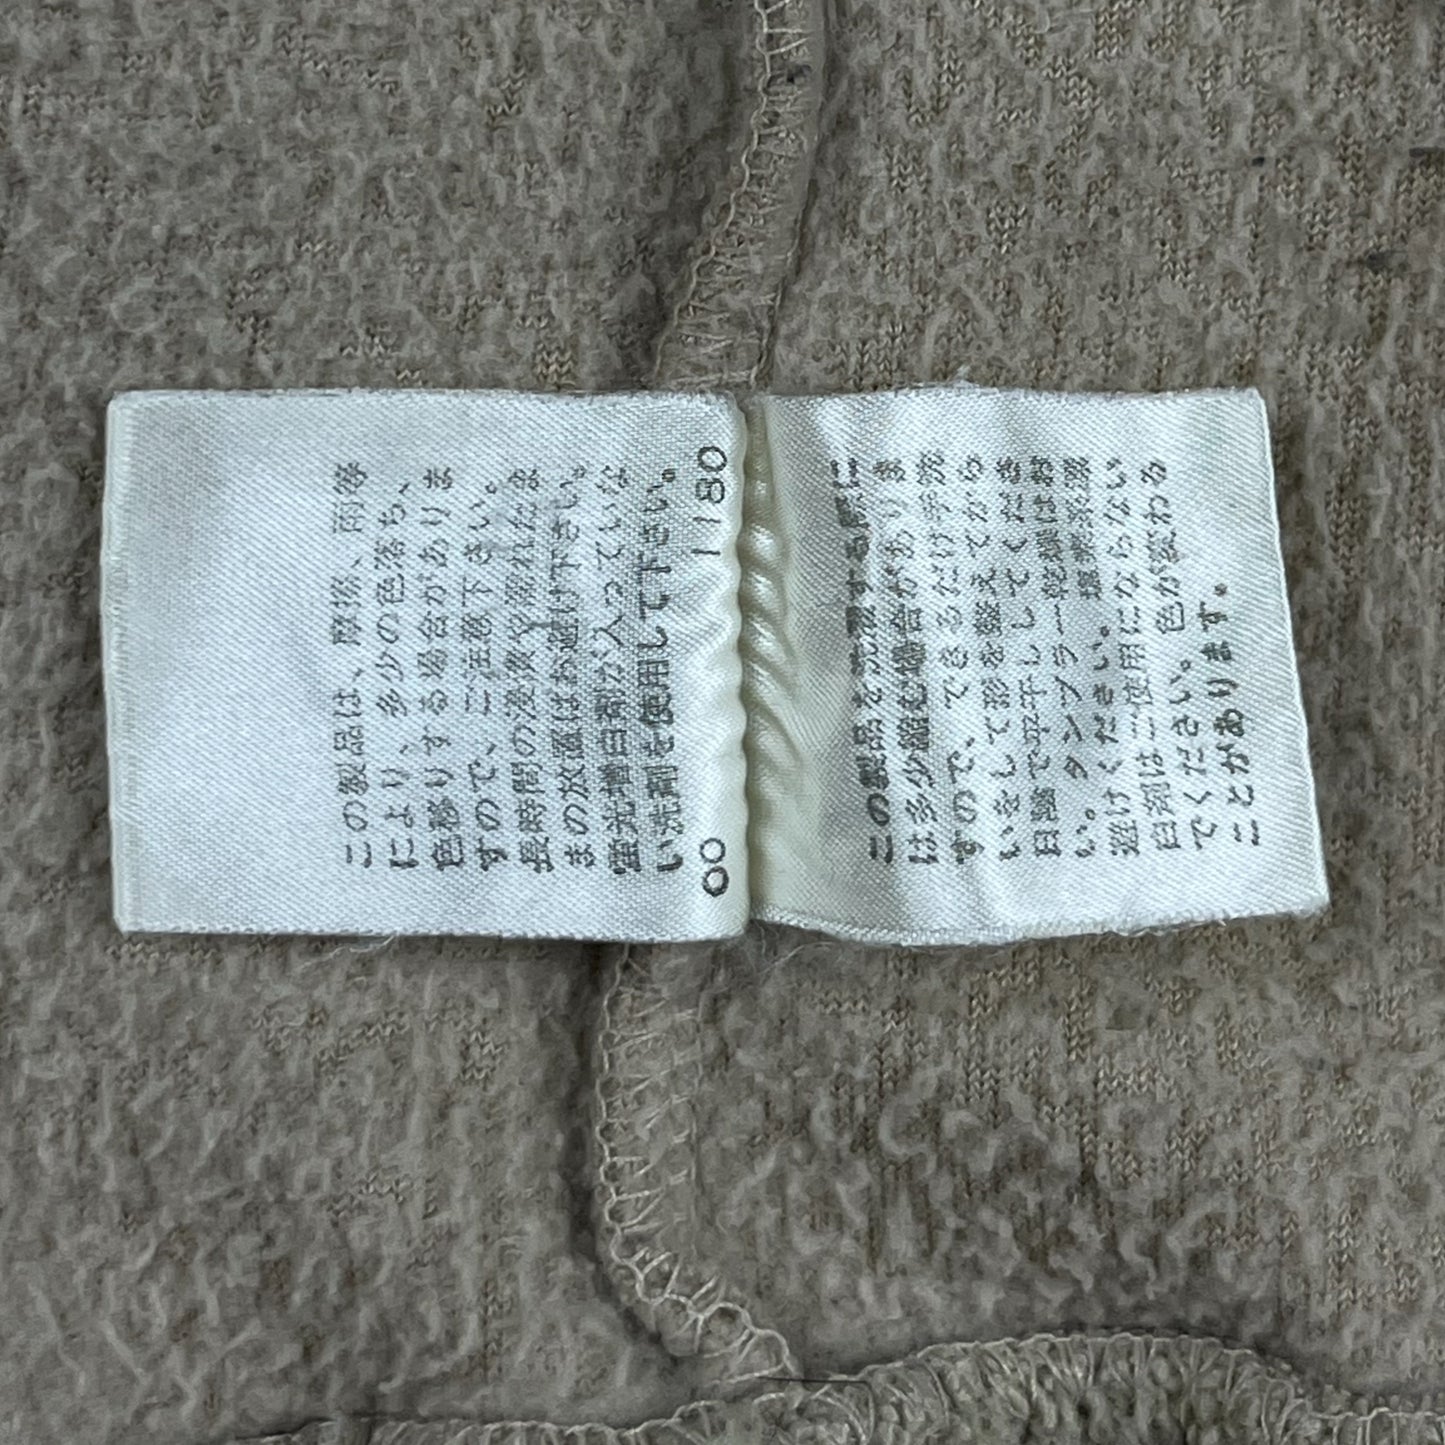 この製品は、摩擦、雨等
により、多少の色落ち、
色移りする場合がありま
すので、ご注意下さい。
長時間の浸漬や濡れたま
まの放置はお避け下さい。
蛍光増白剤が入っていな
い洗剤を使用して下さい。
00 1180
この製品を洗濯する際に
は多少縮む場合がありま
すので、できるだけ手洗
いをして形を整えてから
日陰で平干ししてくださ
い。タンブラー乾燥はお
避けください。塩素系漂
白剤はご使用にならない
でください。色が変わる
ことがあります。